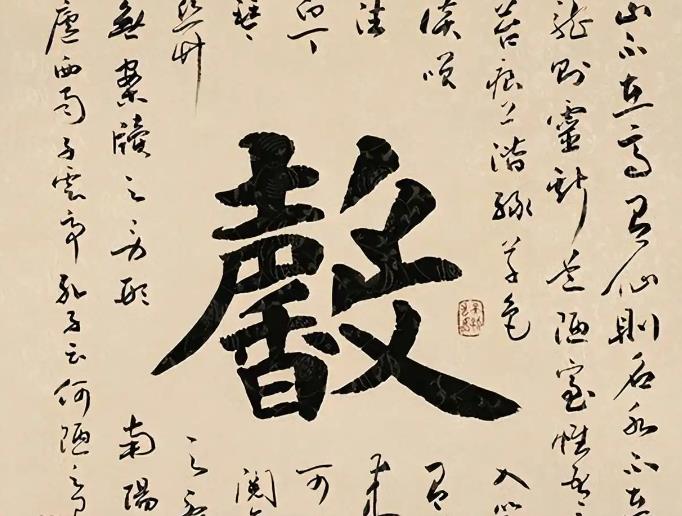 山不在高有仙則名水不在
龍則靈斯是陋室惟吾
苔痕上階綠草色入
談笑 有
馨
白丁 可
琴 閱
絲竹 之
無案牘之勞形 南陽
廬西蜀子雲亭孔子云何陋之有